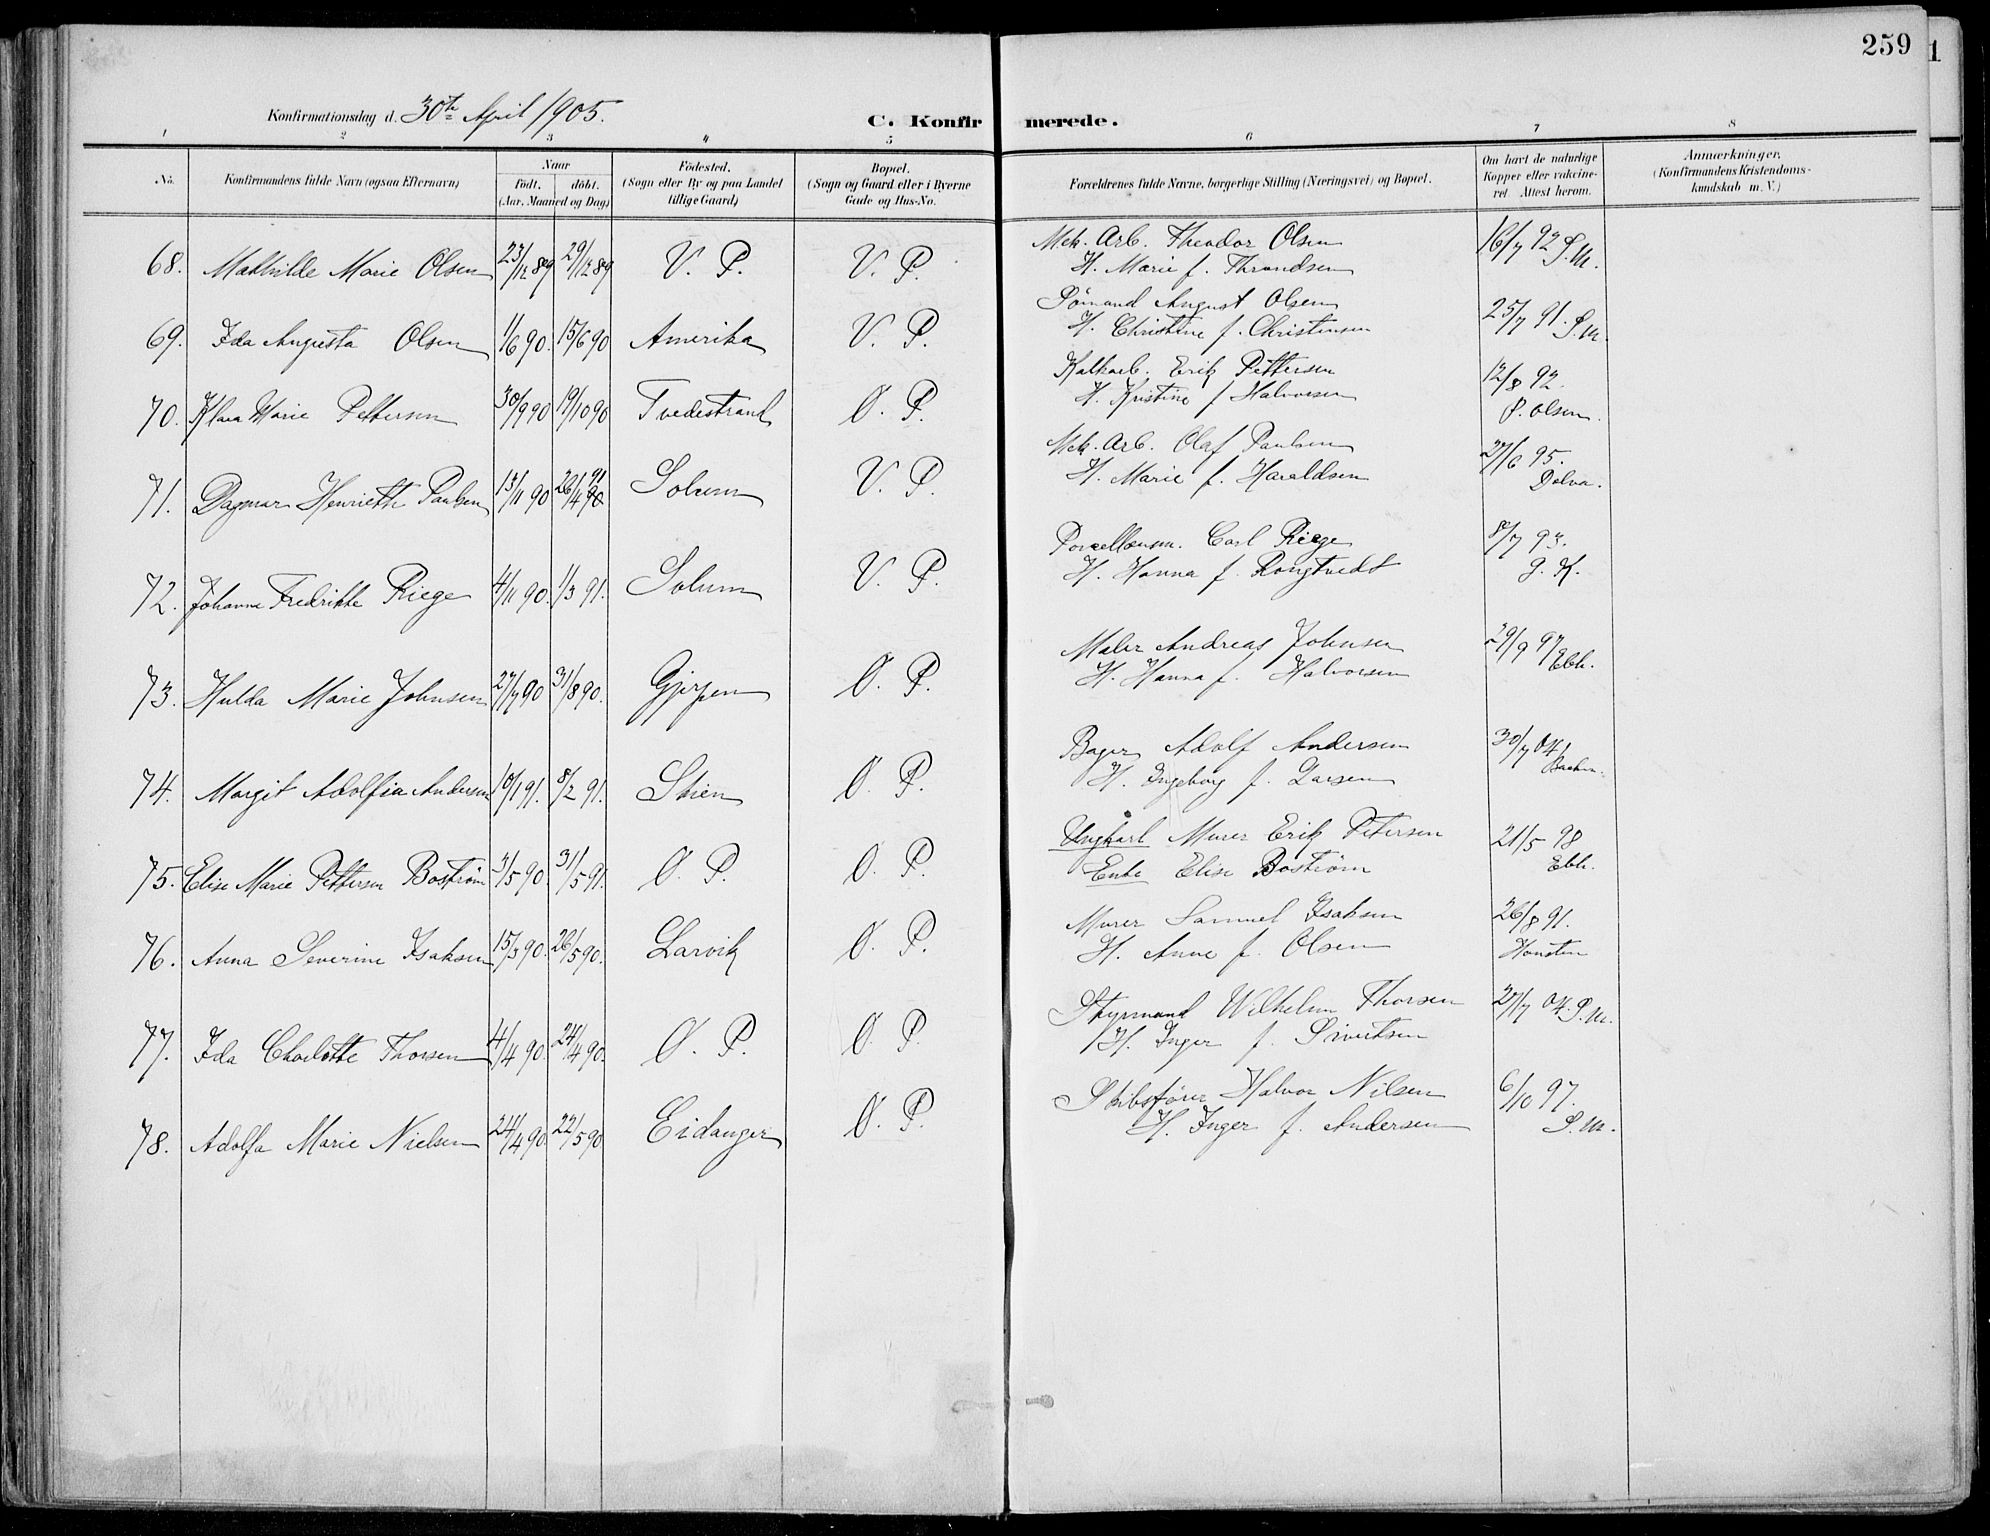 259
1
Konfirmationsdag d. 30te April 1905.
C. Konfirmerede.
1 2 3 4 5 6 7 8
No.
Konfirmandens fulde Navn (ogsaa Efternavn)
Naar
født. døbt.
(Aar, Maaned og Dag)
Födested.
(Sogn eller By og paa Landet
tillige Gaard)
Bopæl.
(Sogn og Gaard eller i Byerne
Gade og Hus-No.
Forældrenes fulde Navne, borgerlige Stilling (Næringsvei) og Bopæl.
Om havt de naturlige
Kopper eller vaccine-
ret. Attest herom.
Anmærkninger.
(Konfirmandens Kristendoms-
kundskab m. V.)
68. Mathilde Marie Olsen 23/12 89 29/12 89 V. P. V. P. Mek. Arb. Theodor Olsen 16/7 92 S.M.
H. Marie f. Throndsen
69. Ida Augusta Olsen 1/6 90. 15/6 90 Amerika V. P. Sömand August Olsen 25/7 91. S.M.
H. Christine f. Christensen
70. Klara Marie Pettersen 30/9 90 19/10 90 Tvedestrand Ø. P. Kalkarb. Erik Pettersen 12/8 92.
H. Kristine f. Halvorsen P. Olsen.
71. Dagmar Henriette Paulsen 13/11 90 26/4 91 90 Solum V. P. Mek. Arb. Olaf Paulsen 27/6 95.
H. Marie f. Haraldsen Dolva.
72. Johanne Fredrikke Riege 4/11 90. 1/3 91. Solum V. P. Porcellænsm. Carl Riege 8/7 93.
H. Hanna f. Rongtvedt J. K.
73. Hulda Marie Johnsen 27/7 90 31/8 90. Gjerpen Ø. P. Maler Andreas Johnsen 29/9 97 Ebh.
H. Hanna f. Halvorsen
74. Margit Adolfia Andersen 10/1 91. 8/2 91. Skien Ø. P. Bager Adolf Andersen 30/7 04
H. Ingeborg f. Larsen
75. Elise Marie Pettersen Boström 3/5 90. 31/5 91. Ø. P. Ø. P. Ungkarl Murer Erik Petersen 21/5 98
Enke Elise Boström Ebh.
76. Anna Severine Isaksen 15/3 90. 26/5 90. Larvik Ø. P. Murer Samuel Isaksen 26/8 91.
H. Anne f. Olsen
77. Ida Charlotte Thorsen 4/4 90. 24/4 90. Ø. P. Ø. P. Styrmand Wilhelm Thorsen 27/7 04. S.M.
H. Inger f. Sivertsen
78. Adolfa Marie Nielsen 24/4 90 22/5 90 Eidanger Ø. P. Skibsfører Halvor Nilsen 6/10 97.
H. Inger f. Andersen S.M.